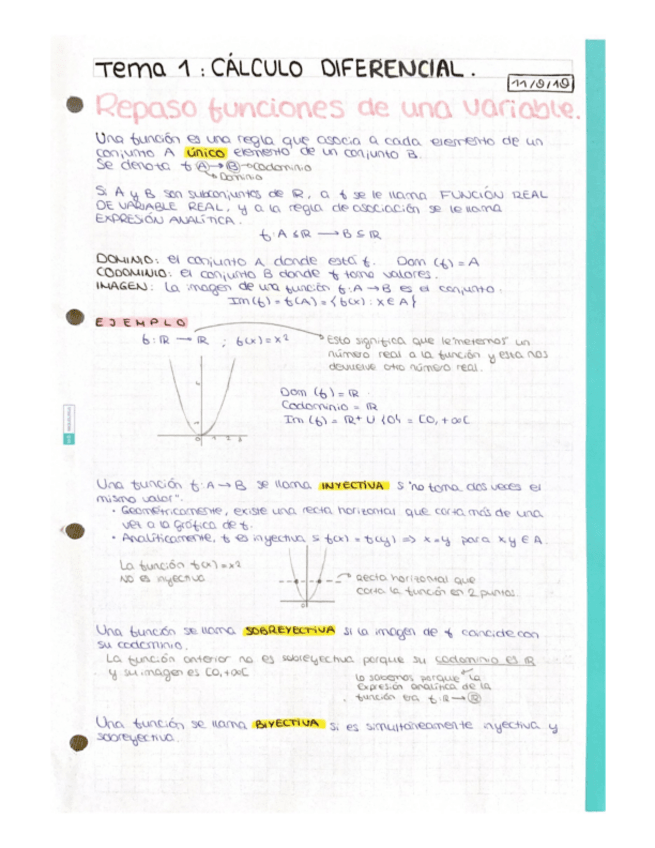 Tema 1: CÁLCULO DIFERENCIAL.
11/9/19
Repaso funciones de una variable.
Una función es una regla que asocia a cada elemento de un
conjunto A único elemento de un conjunto B.
Se denota f A → B → Codominio
Dominio
Si A y B son subconjuntos de ℝ, a f se le llama FUNCIÓN REAL
DE VARIABLE REAL, y a la regla de asociación se le llama
EXPRESIÓN ANALÍTICA.
f: A ⊆ ℝ → B ⊆ ℝ
DOMINIO: el conjunto A donde está f. Dom (f) = A
CODOMINIO: el conjunto B donde f toma valores.
IMAGEN: La imagen de una función f: A → B es el conjunto:
Im(f) = f(A) = {f(x) : x ∈ A}
EJEMPLO
f: ℝ → ℝ ; f(x) = x²
Esto significa que le metemos un
número real a la función y esta nos
devuelve otro número real.
Dom (f) = ℝ
Codominio = ℝ
Im (f) = ℝ+ ∪ {0} = [0, +∞[
0 1 2 3
Una función f: A → B se llama INYECTIVA si "no toma dos veces el
mismo valor".
• Geométricamente, existe una recta horizontal que corta más de una
vez a la gráfica de f.
• Analíticamente, f es inyectiva si f(x) = f(y) => x=y para x y ∈ A.
La función f(x) = x²
no es inyectiva
Recta horizontal que
corta la función en 2 puntos.
Una función se llama SOBREYECTIVA si la imagen de f coincide con
su codominio.
La función anterior no es sobreyectiva porque su codominio es ℝ
y su imagen es [0, +∞[
lo sabemos porque la
expresión analítica de la
función era f: ℝ → ℝ
Una función se llama BIYECTIVA si es simultáneamente inyectiva y
sobreyectiva.